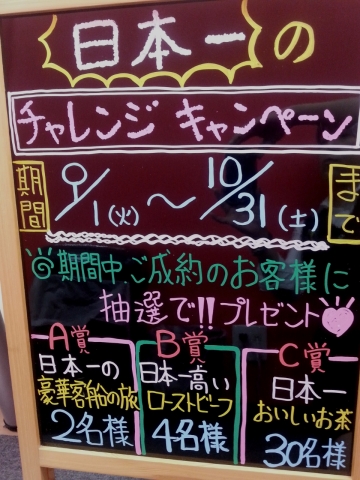 日本一の
チャレンジ キャンペーン
期間 9/1(火)～10/31(土)まで
◎期間中、ご成約のお客様に
抽選で!!プレゼント♥
A賞
日本一の
豪華客船の旅
2名様
B賞
日本一高い
ローストビーフ
4名様
C賞
日本一
おいしいお茶
30名様